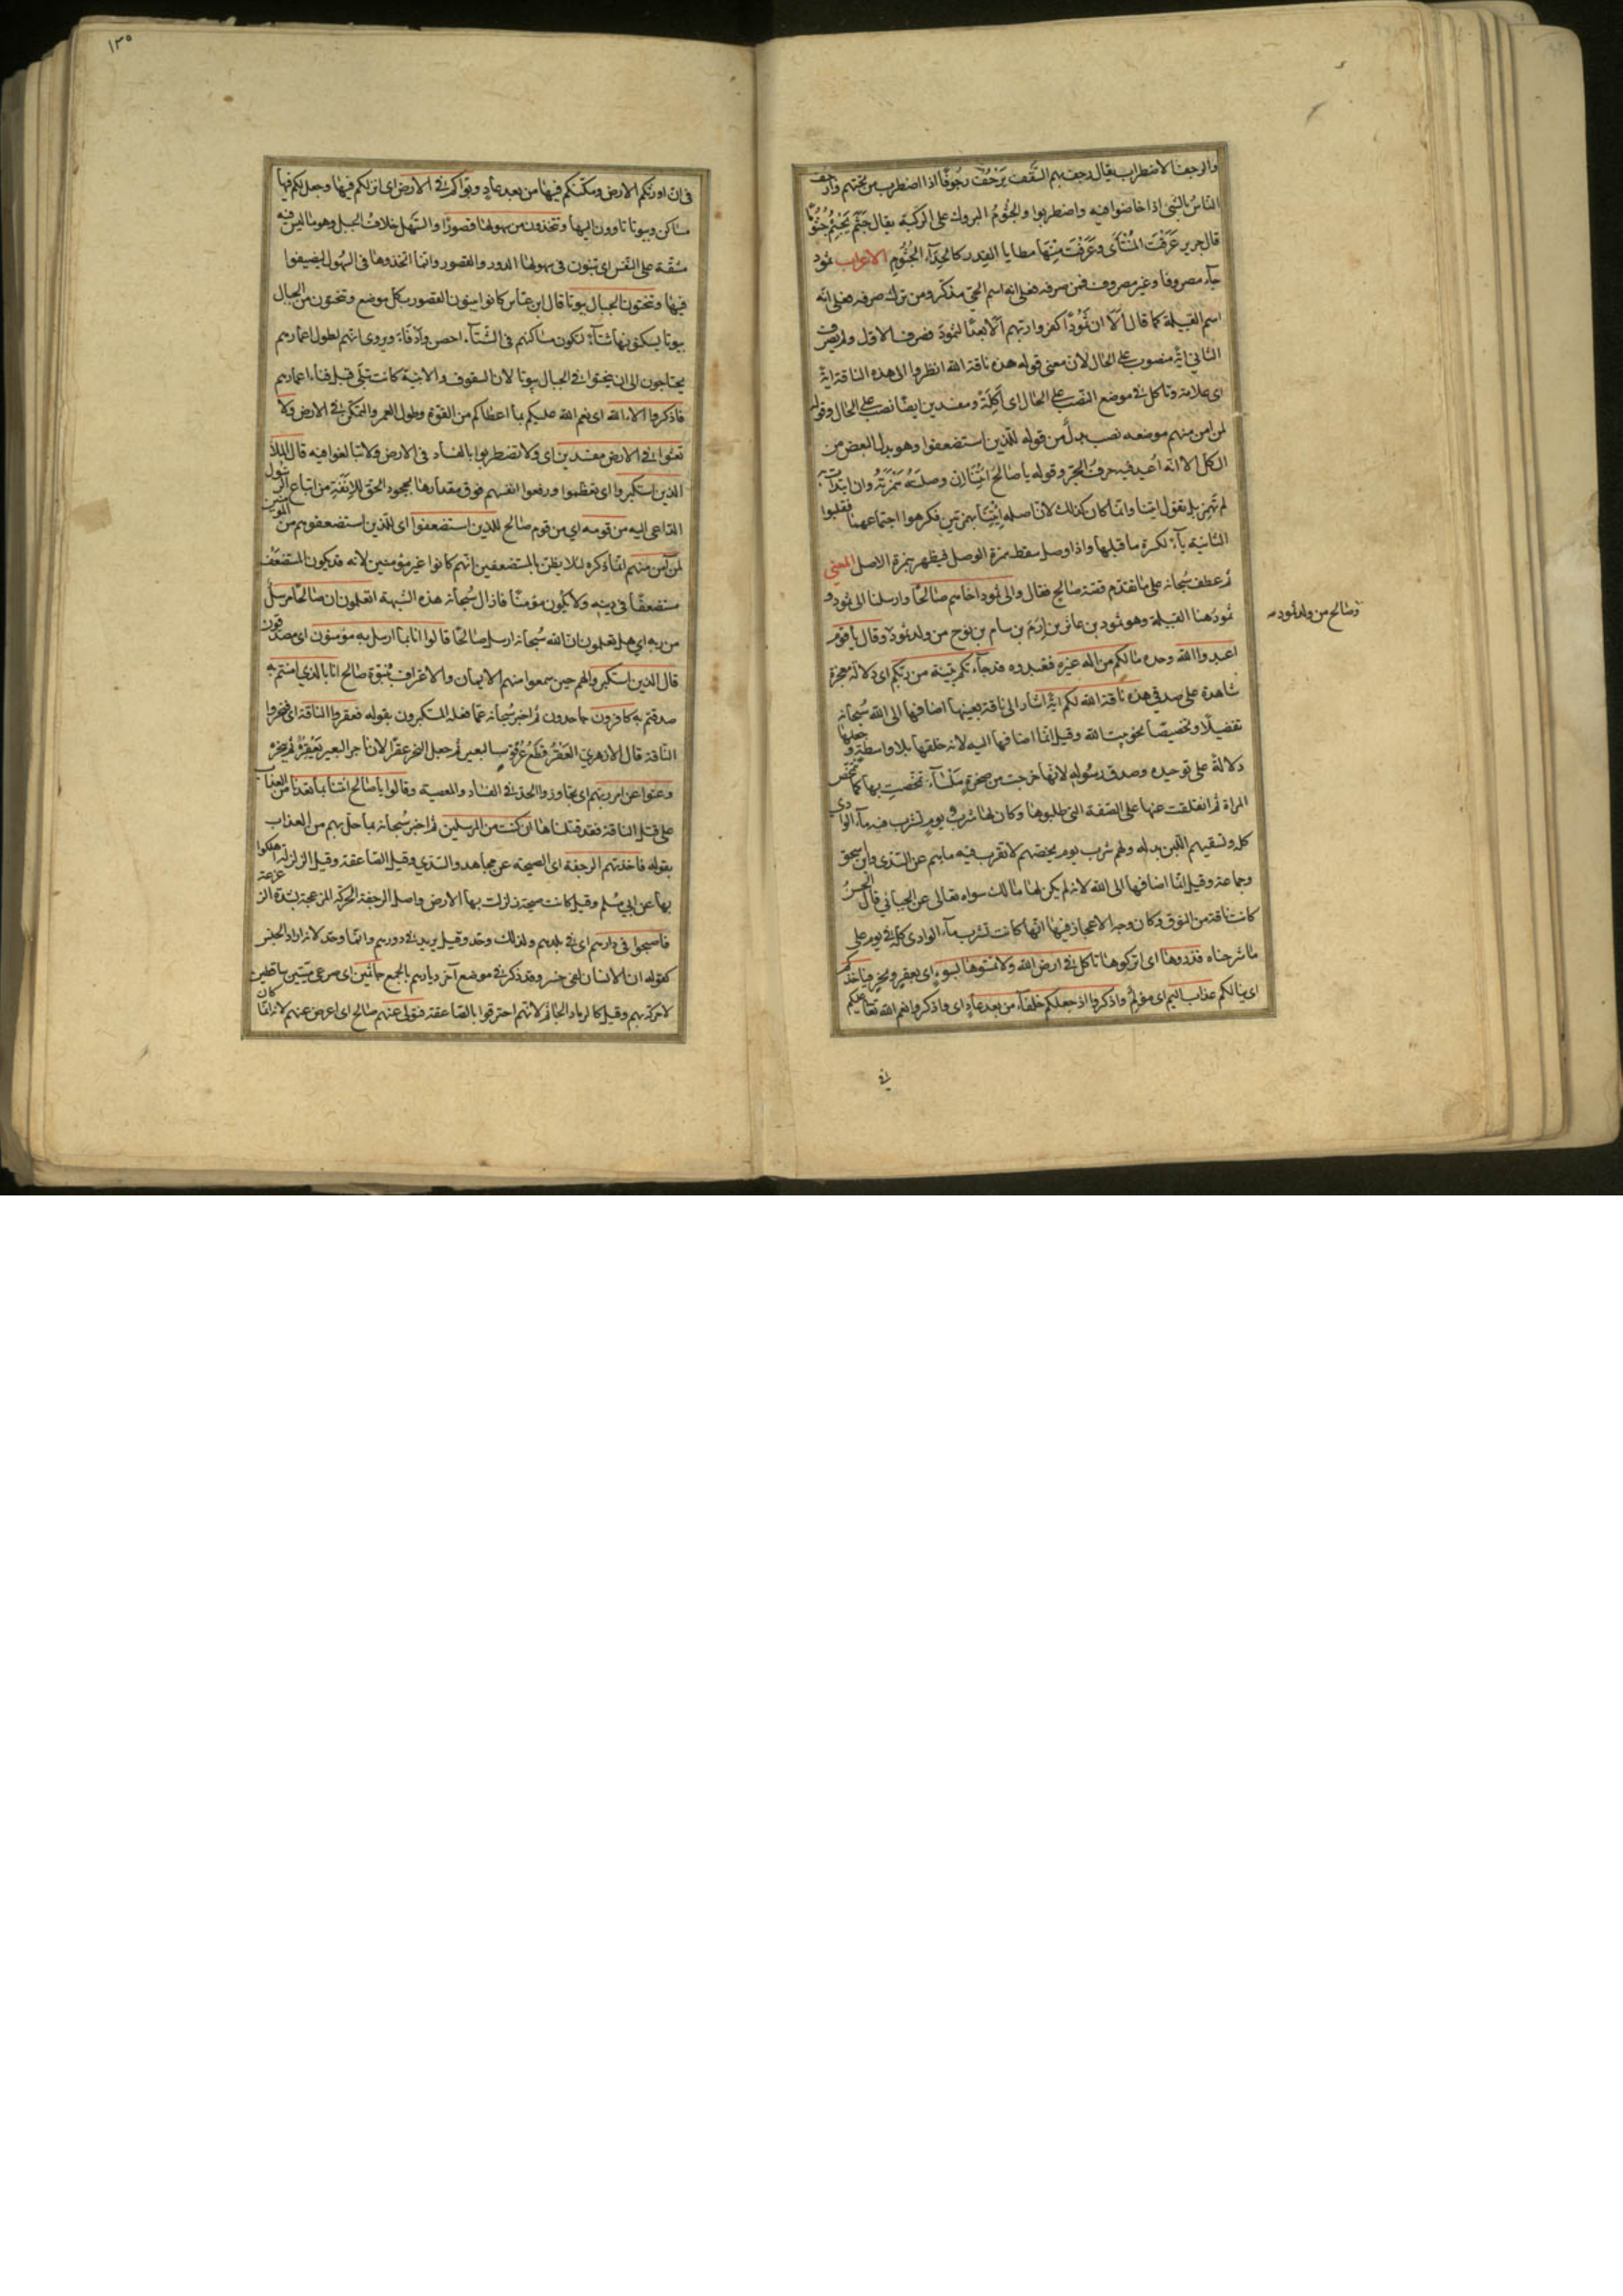 والرجفة الاضطراب يقال رجف بهم السَّقف يَرْجُفُ رجُوفًا اذا اضطرب من تحتهم وارجف
الناسُ بالشئ اذا خاضوا فيه واضطربوا والجُثُومُ البروك على الركبة يقال جَثَمَ يَجْثِمُ جُثُومًا
قال جرير عَرَفْتُ المُنْتَأَى وعَرَفْتُ مِنْهَا مطايا القِدر كالحِدَاء الجُثُوم الاعراب ثمود
جاء مصروفا وغير مصروف فمن صرفه فعلى انه اسم الحي مذكر ومن ترك صرفه فعلى انه
اسم القبيلة كما قال أَلَا ان ثَمُودًا كفروا ربهم أَلَا بُعدًا لثمودَ فصرف الاول ولم يصرف
الثاني اية منصوب على الحال لان معنى قوله هذه ناقة الله انظروا الى هذه الناقة اية
اى علامة وتاكل في موضع النصب على الحال اى آكِلَةً ومفسدين ايضا نصب على الحال وقوله
لمن امن منهم موضعه نصب بدلٌ من قوله للذين استضعفوا وهو بدل البعض من
الكل الا انه اعيد فيه حرف الجر وقوله يا صالح ائتنا ان وصلته همزته وان ابتدات به
لم تهمز بل تقول ايتنا وانما كان كذلك لان اصله إِئْتِنَا بهمزتين فكرهوا اجتماعهما فقلبوا
الثانية ياء لكسرة ما قبلها واذا وصل سقط همزة الوصل فيظهر همزة الاصل المعنى
ثم عطف سُبحانه على ما تقدم قصة صالح فقال والى ثمود اخاهم صالحًا وارسلنا الى ثمود و
ثمود هنا القبيلة وهو ثمود بن عاثر بن إِرَمَ بن سام بن نوح من ولد ثمود وقال يا قوم
وصالح من ولد ثمود صح
اعبدوا الله وحده ما لكم من اله غيره فتعبدوه قد جاءتكم بينة من ربكم اى دلالة معجزة
شاهدة على صدقي هذه ناقة الله لكم اية اشار الى ناقة بعينها اضافها الى الله سُبحانه
تفضيلًا وتخصيصًا نحو بيت الله وقيل انما اضافها اليه لانه خلقها بلا واسطة و جعلها
دلالةً على توحيده وصدق رسُوله لانها خرجت من صخرةٍ مَلْسَاء تمخضت بها كما تتمخض
المراة ثم انفلقت عنها على الصفة التى طلبوها وكان لها شرب يومٍ تشرب فيه ماء الوادى
كله وتسقيهم اللبن بدله ولهم شرب يوم يخصهم لا تقرب فيه ماءهم عن السّدى وابن اسحق
وجماعة وقيل انما اضافها الى الله لانه لم يكن لها مالك سواه تعالى عن الجبائي قال الحسنُ
كانت ناقة من النوق وكان وجه الاعجاز فيها انها كانت تشرب ماء الوادى كله في يوم على
ما شرحناه فذروها اى اتركوها تاكل في ارض الله ولا تمسّوها بسوءٍ اى بعقرٍ ونحرٍ فياخذكم
اى ينالكم عذاب اليم اى مؤلم واذكروا اذ جعلكم خلفاء من بعد عادٍ اى واذكروا نعم الله تعا عليكم
في
١٣٥
في ان اورثكم الارض ومكّنكم فيها من بعد عادٍ وبوّاكم في الارض اى انزلكم فيها وجعل لكم فيها
مساكن وبيوتا تاوون اليها وتتخذون من سهولها قصورًا والسَّهل خلاف الجبل وهو ما ليس فيه
مشقّة على النّفس اى تبنون فى سهولها الدور والقصور وانما اتخذوها فى السُهول ليضيفوا
فيها وتنحتون الجبال بيوتا قال ابن عبّاس كانوا يبنون القصور بكل موضع وتنحتون من الجبال
بيوتا يسكنونها شتاءً لتكون مساكنهم فى الشتاء احصن وادفأ ويروى انهم لطول اعمارهم
يحتاجون الى ان ينحتوا في الجبال بيوتا لان السقوف والابنية كانت تبلى قبل فناء اعمارهم
فاذكروا الاء الله اى نعم الله عليكم بما اعطاكم من القوة وطول العمر والتمكن في الارض ولا
تعثوا في الارض مفسدين اى ولا تضطربوا بالفساد فى الارض ولا تبالغوا فيه قال الملأ
الذين استكبروا اى تعظموا ورفعوا انفسهم فوق مقدارها بجحود الحق للانفة من اتباع الرسول
الداعى اليه من قومه اي من قوم صالح للذين استضعفوا اى للذين استضعفوهم من المؤمنين
لمن آمن منهم انما ذكره لئلا يظن بالمستضعفين انهم كانوا غير مؤمنين لانه قد يكون المستضعَف
مستضعفًا فى دينه ولا يكون مؤمنًا فازال سُبحانه هذه الشبهة اتعلمون ان صالحًا مرسلٌ
من ربه اي هل تعلمون ان الله سُبحانه ارسل صالحًا قالوا انا بما ارسل به مؤمنون اى مصدقون
قال الذين استكبروا لهم حين سمعوا منهم الايمان والاعتراف بنبوّة صالح انا بالذي امنتم به
صدقتم به كافرون جاحدون ثم اخبر سُبحانه عما فعله المستكبرون بقوله فعقروا الناقة اى فنحروا
النّاقة قال الازهريّ العَقْرُ قطعُ عُرقوب البعير ثم جعل النحر عقرًا لان ناحر البعير يَعْقِرُهُ ثم ينحره
وعتوا عن امر ربهم اى تجاوزوا الحد في الفساد والمعصية وقالوا يا صالح ائتنا بما تعدنا من العذاب
على قتل الناقة فقد قتلناها ان كنت من المرسلين ثم اخبر سُبحانه بما حل بهم من العذاب
بقوله فاخذتهم الرجفة اى الصيحة عن مجاهد والسّدي وقيل الصّاعقة وقيل الزلزلة اهلكوا
بها عن ابي مُسلم وقيل كانت صيحة زلزلت بها الارض واصل الرجفة الحركة المزعجة بشدة الزعزعة
فاصبحوا فى دارهم اى في بلدهم ولذلك وحّد وقيل يريد في دورهم وانما وحد لانه اراد الجنس
كقوله ان الانسان لفى خسر وقد ذكر في موضع آخر ديارهم بالجمع جاثمين اى صرعى ميّتين ساقطين
لا حركة بهم وقيل كالرماد الجاثم لانهم احترقوا بالصّاعقة فتولى عنهم صالح اى اعرض عنهم لانه كان